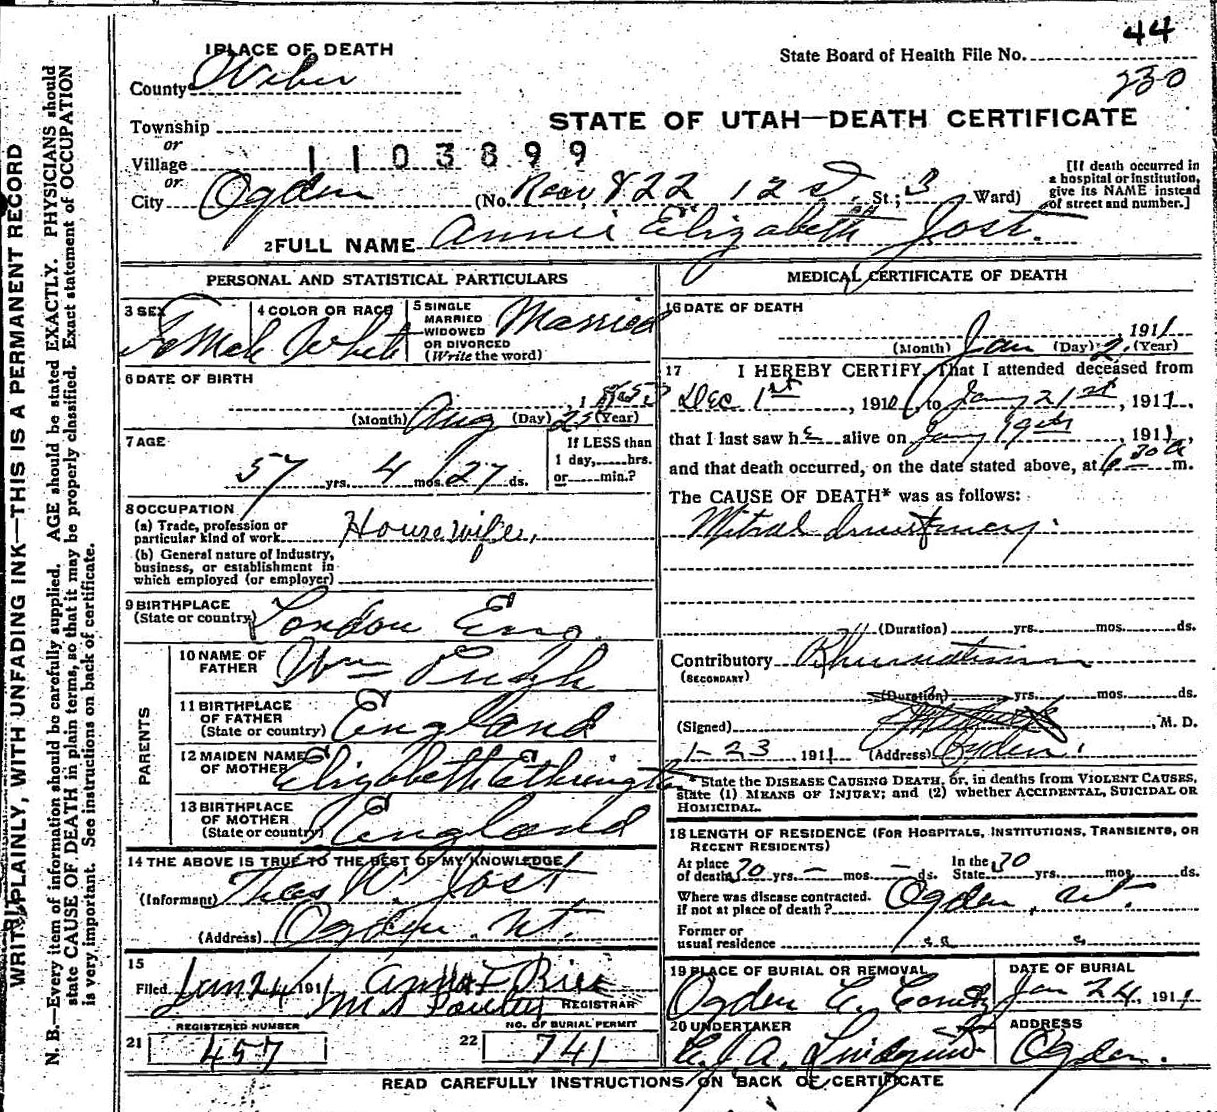 44
1 PLACE OF DEATH
State Board of Health File No.
230
County Weber
STATE OF UTAH—DEATH CERTIFICATE
Township
or
Village
1103899
or
City Ogden (No. Rear 822 12 St.; 3 Ward)
[If death occurred in
a hospital or institution,
give its NAME instead
of street and number.]
2 FULL NAME Annie Elizabeth Jost.
PERSONAL AND STATISTICAL PARTICULARS
3 SEX Female
4 COLOR OR RACE White
5 SINGLE
MARRIED
WIDOWED
OR DIVORCED
(Write the word)
Married
6 DATE OF BIRTH
(Month) Aug (Day) 25 (Year)
7 AGE
57 yrs. 4 mos. 27 ds.
If LESS than
1 day, hrs.
or min.?
8 OCCUPATION
(a) Trade, profession or
particular kind of work House wife,
(b) General nature of Industry,
business, or establishment in
which employed (or employer)
9 BIRTHPLACE
(State or country) London Eng.
PARENTS
10 NAME OF
FATHER Wm Pugh
11 BIRTHPLACE
OF FATHER
(State or country) England
12 MAIDEN NAME
OF MOTHER Elizabeth Ethrington
13 BIRTHPLACE
OF MOTHER
(State or country) England
14 THE ABOVE IS TRUE TO THE BEST OF MY KNOWLEDGE
(Informant) Thos W. Jost
(Address) Ogden Ut.
15
Filed Jan 24 1911 Anna F Rice
M S REGISTRAR
REGISTERED NUMBER
21 457
NO. OF BURIAL PERMIT
22 741
MEDICAL CERTIFICATE OF DEATH
16 DATE OF DEATH
, 1911
(Month) Jan (Day) 2 (Year)
17 I HEREBY CERTIFY, That I attended deceased from
Dec 1st, 1910, to Jany 21st, 1911,
that I last saw he alive on Jany 19th, 1911,
and that death occurred, on the date stated above, at 6 30 a m.
The CAUSE OF DEATH* was as follows:
Mitral
(Duration) yrs. mos. ds.
Contributory Rhumatism
(SECONDARY)
(Duration) yrs. mos. ds.
(Signed) , M. D.
1-23 1911 (Address) Ogden.
* State the DISEASE CAUSING DEATH, or, in deaths from VIOLENT CAUSES,
state (1) MEANS OF INJURY; and (2) whether ACCIDENTAL, SUICIDAL OR
HOMICIDAL.
18 LENGTH OF RESIDENCE (FOR HOSPITALS, INSTITUTIONS, TRANSIENTS, OR
RECENT RESIDENTS)
At place
of death 30 yrs. — mos. — ds.
In the
State 30 yrs. mos. ds.
Where was disease contracted.
if not at place of death? Ogden, ut.
Former or
usual residence
19 PLACE OF BURIAL OR REMOVAL
Ogden
DATE OF BURIAL
Jan 24, 1911
20 UNDERTAKER
ADDRESS
Ogden.
READ CAREFULLY INSTRUCTIONS ON BACK OF CERTIFICATE
WRITE PLAINLY, WITH UNFADING INK—THIS IS A PERMANENT RECORD
N. B.—Every item of information should be carefully supplied. AGE should be stated EXACTLY. PHYSICIANS should
state CAUSE OF DEATH in plain terms, so that it may be properly classified. Exact statement of OCCUPATION
is very important. See instructions on back of certificate.